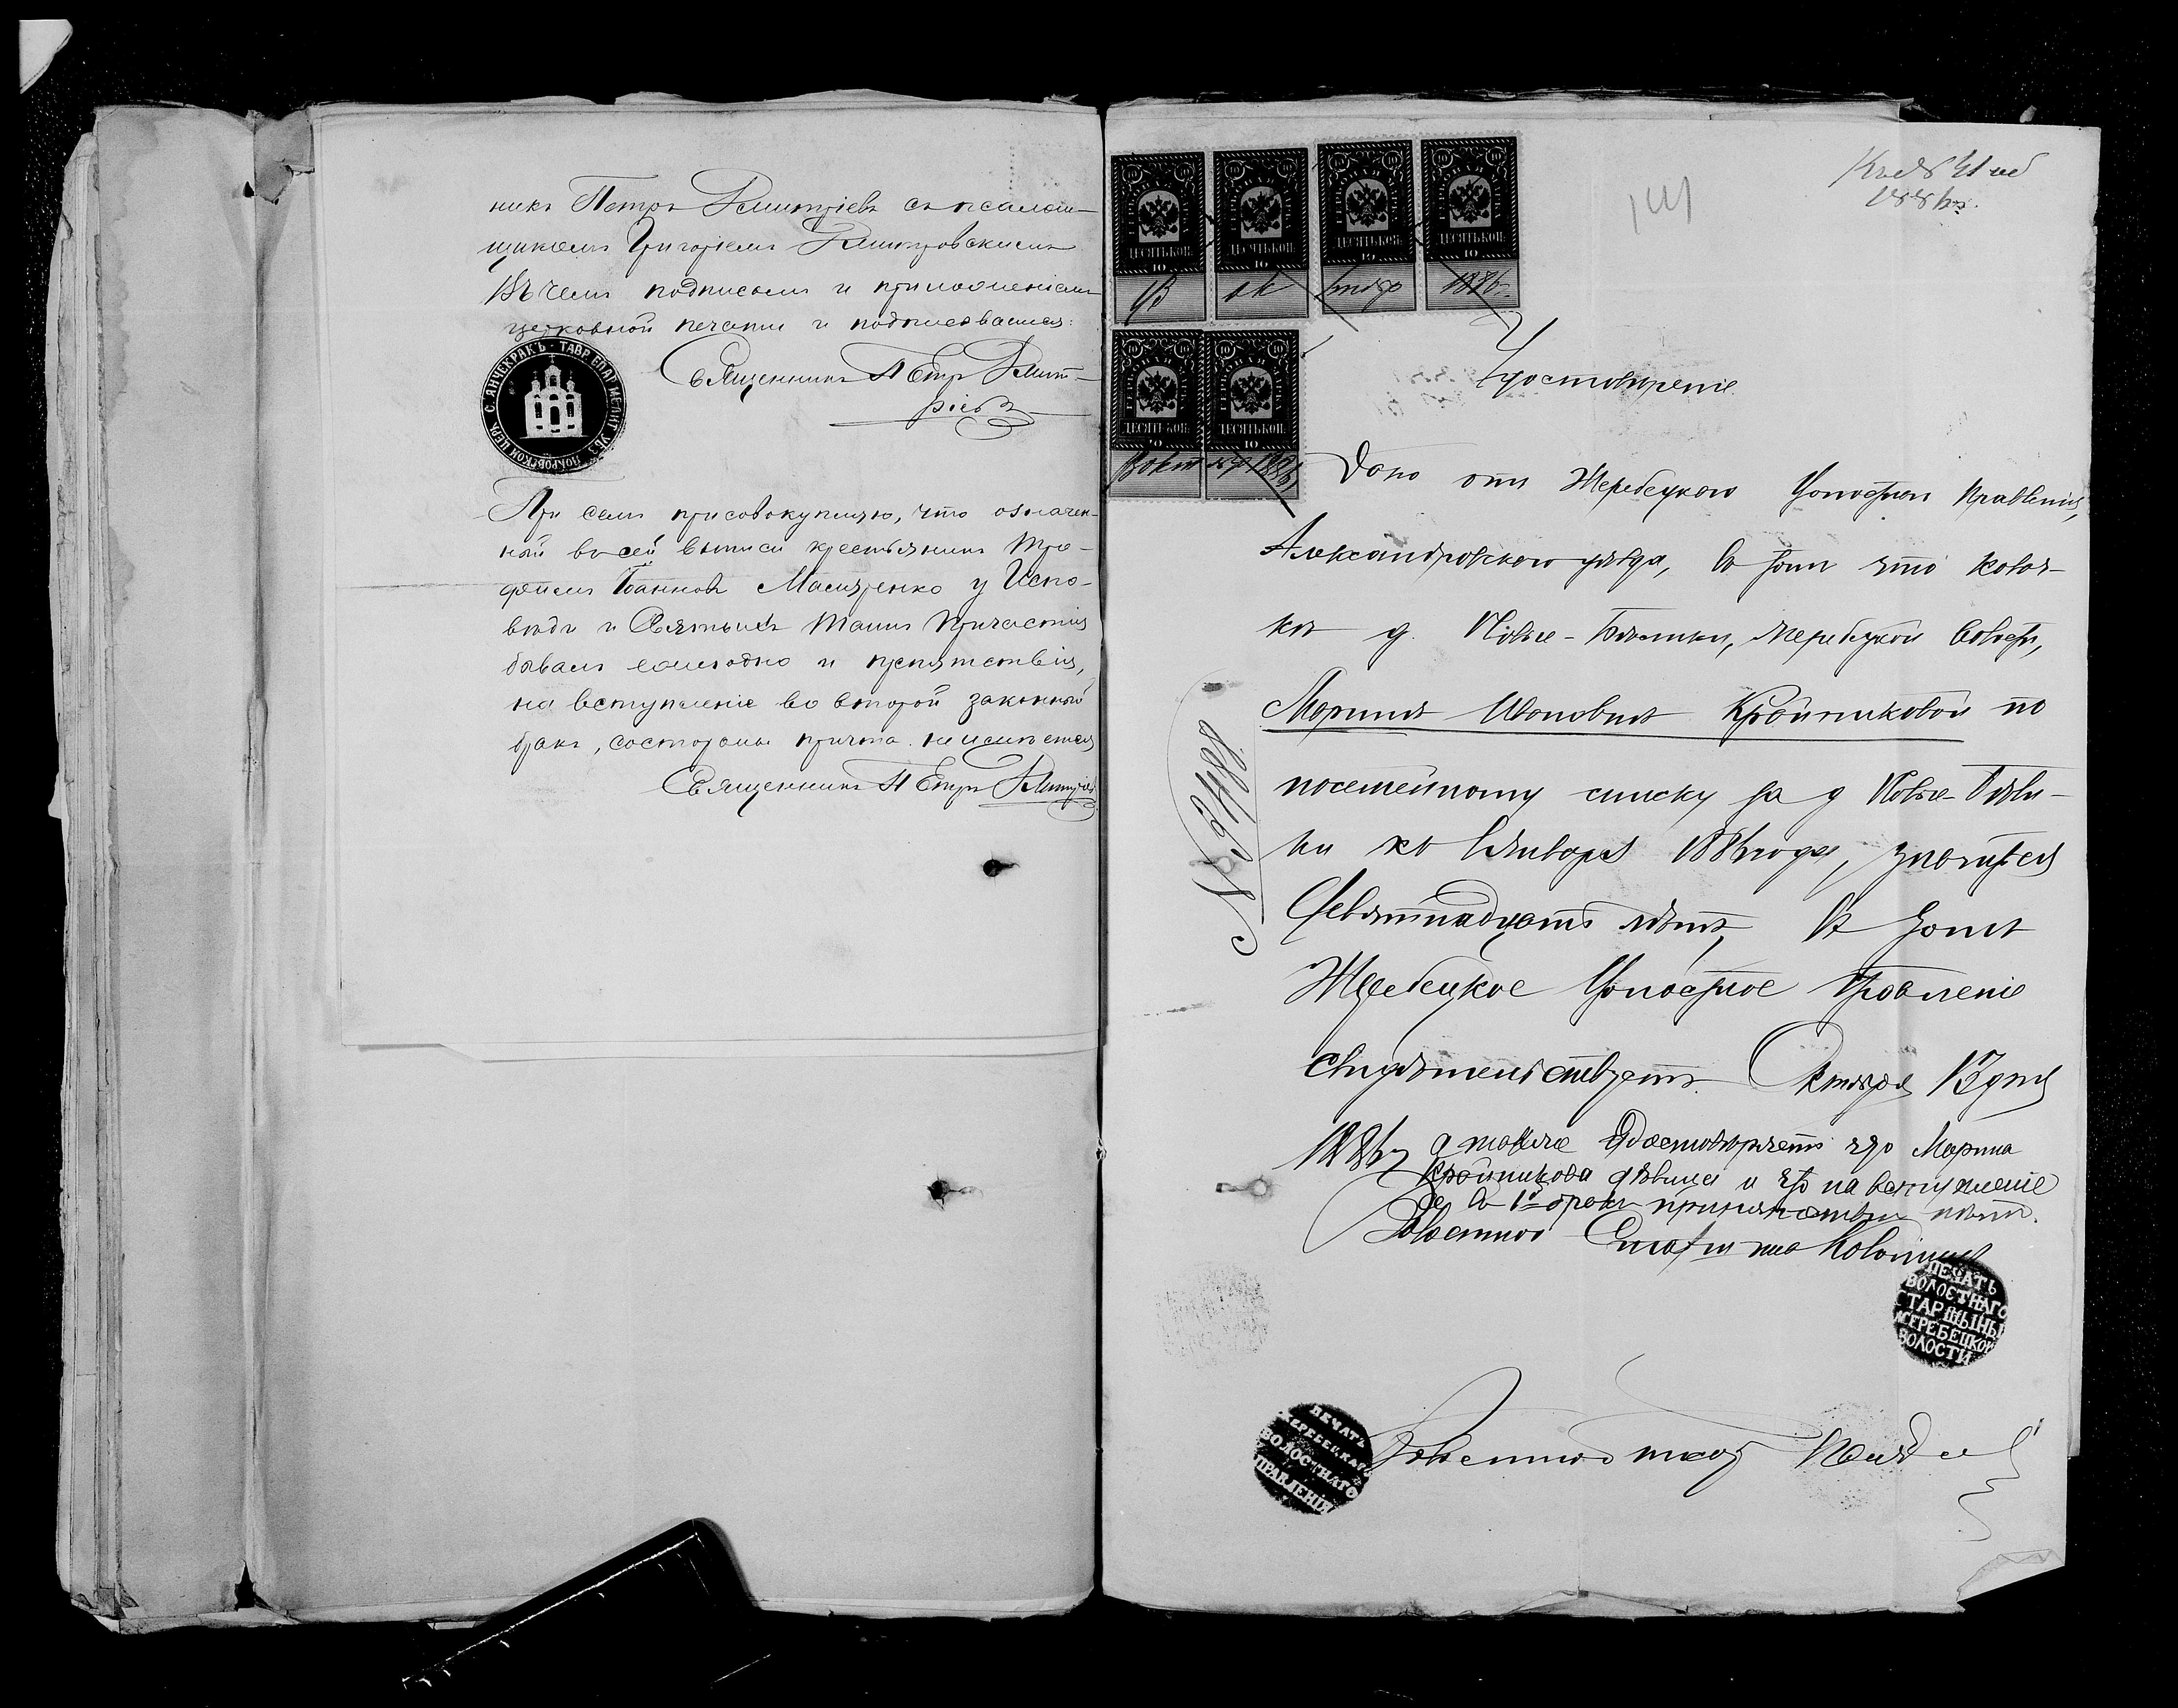 никъ Петръ Дмитріевъ съ псалом-
щикомъ Григоріемъ Дмитровскимъ
въ чемъ подписомъ и приложеніемъ
церковной печати и подписваемся:
Священникъ Петръ Дмит-
ріевъ
С. АНЧЕКРАКЪ - ТАВР. ЕПАР. МЕЛИТ. УѢЗ. ПОКРОВСКОЙ ЦЕРК.
При семъ присовокупляю, что означен-
ный въ сей выписи крестьянинъ Тро-
фимъ Іоанновъ Масляренко у Испо-
вѣди и Святыхъ Таинъ Причастія
бывалъ ежегодно и препятствія,
на вступленіе во второй законный
бракъ, состороны причта неимѣется
Священникъ Петръ Дмитріевъ
Къ № 41 об
1886 г.
ГЕРБОВАЯ МАРКА ДЕСЯТЬ КОП. 10
ГЕРБОВАЯ МАРКА ДЕСЯТЬ КОП. 10
ГЕРБОВАЯ МАРКА ДЕСЯТЬ КОП. 10
ГЕРБОВАЯ МАРКА ДЕСЯТЬ КОП. 10
13 ок тябр 1886
ГЕРБОВАЯ МАРКА ДЕСЯТЬ КОП. 10
ГЕРБОВАЯ МАРКА ДЕСЯТЬ КОП. 10
13 окт ябр 1886
Удостовѣреніе.
Дано отъ Жеребецкого Волостнаго Правленія,
Александровского уѣзда, въ томъ что козач-
кѣ д. Новые-Бѣлики, Жеребецкой Волости,
Маринѣ Ивановнѣ Крайниковой по
посемейному списку за д Новые-Бѣли-
ки къ 1 Января 1886 года, значится
Девятнадцать лѣтъ, въ томъ
Жеребецкое Волостное Правленіе
свидѣтельствуетъ. Октября 13 дня
1886 г а также удостовѣряетъ что Марина
Крайникова дѣвица и что на вступленіе
ее въ 1й бракъ припятствія нѣтъ.
Волостной Старшина
№ 3488
ПЕЧАТЬ
ВОЛОСТНАГО
СТАРШИНЫ
ЖЕРЕБЕЦКОЙ
ВОЛОСТИ
ПЕЧАТЬ
ЖЕРЕБЕЦКАГО
ВОЛОСТНАГО
ПРАВЛЕНІЯ
Волостной писарь